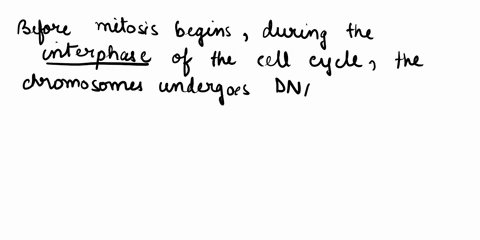 Before mitosis begins, during the
interphase of the cell cycle, the
chromosomes undergoes DN